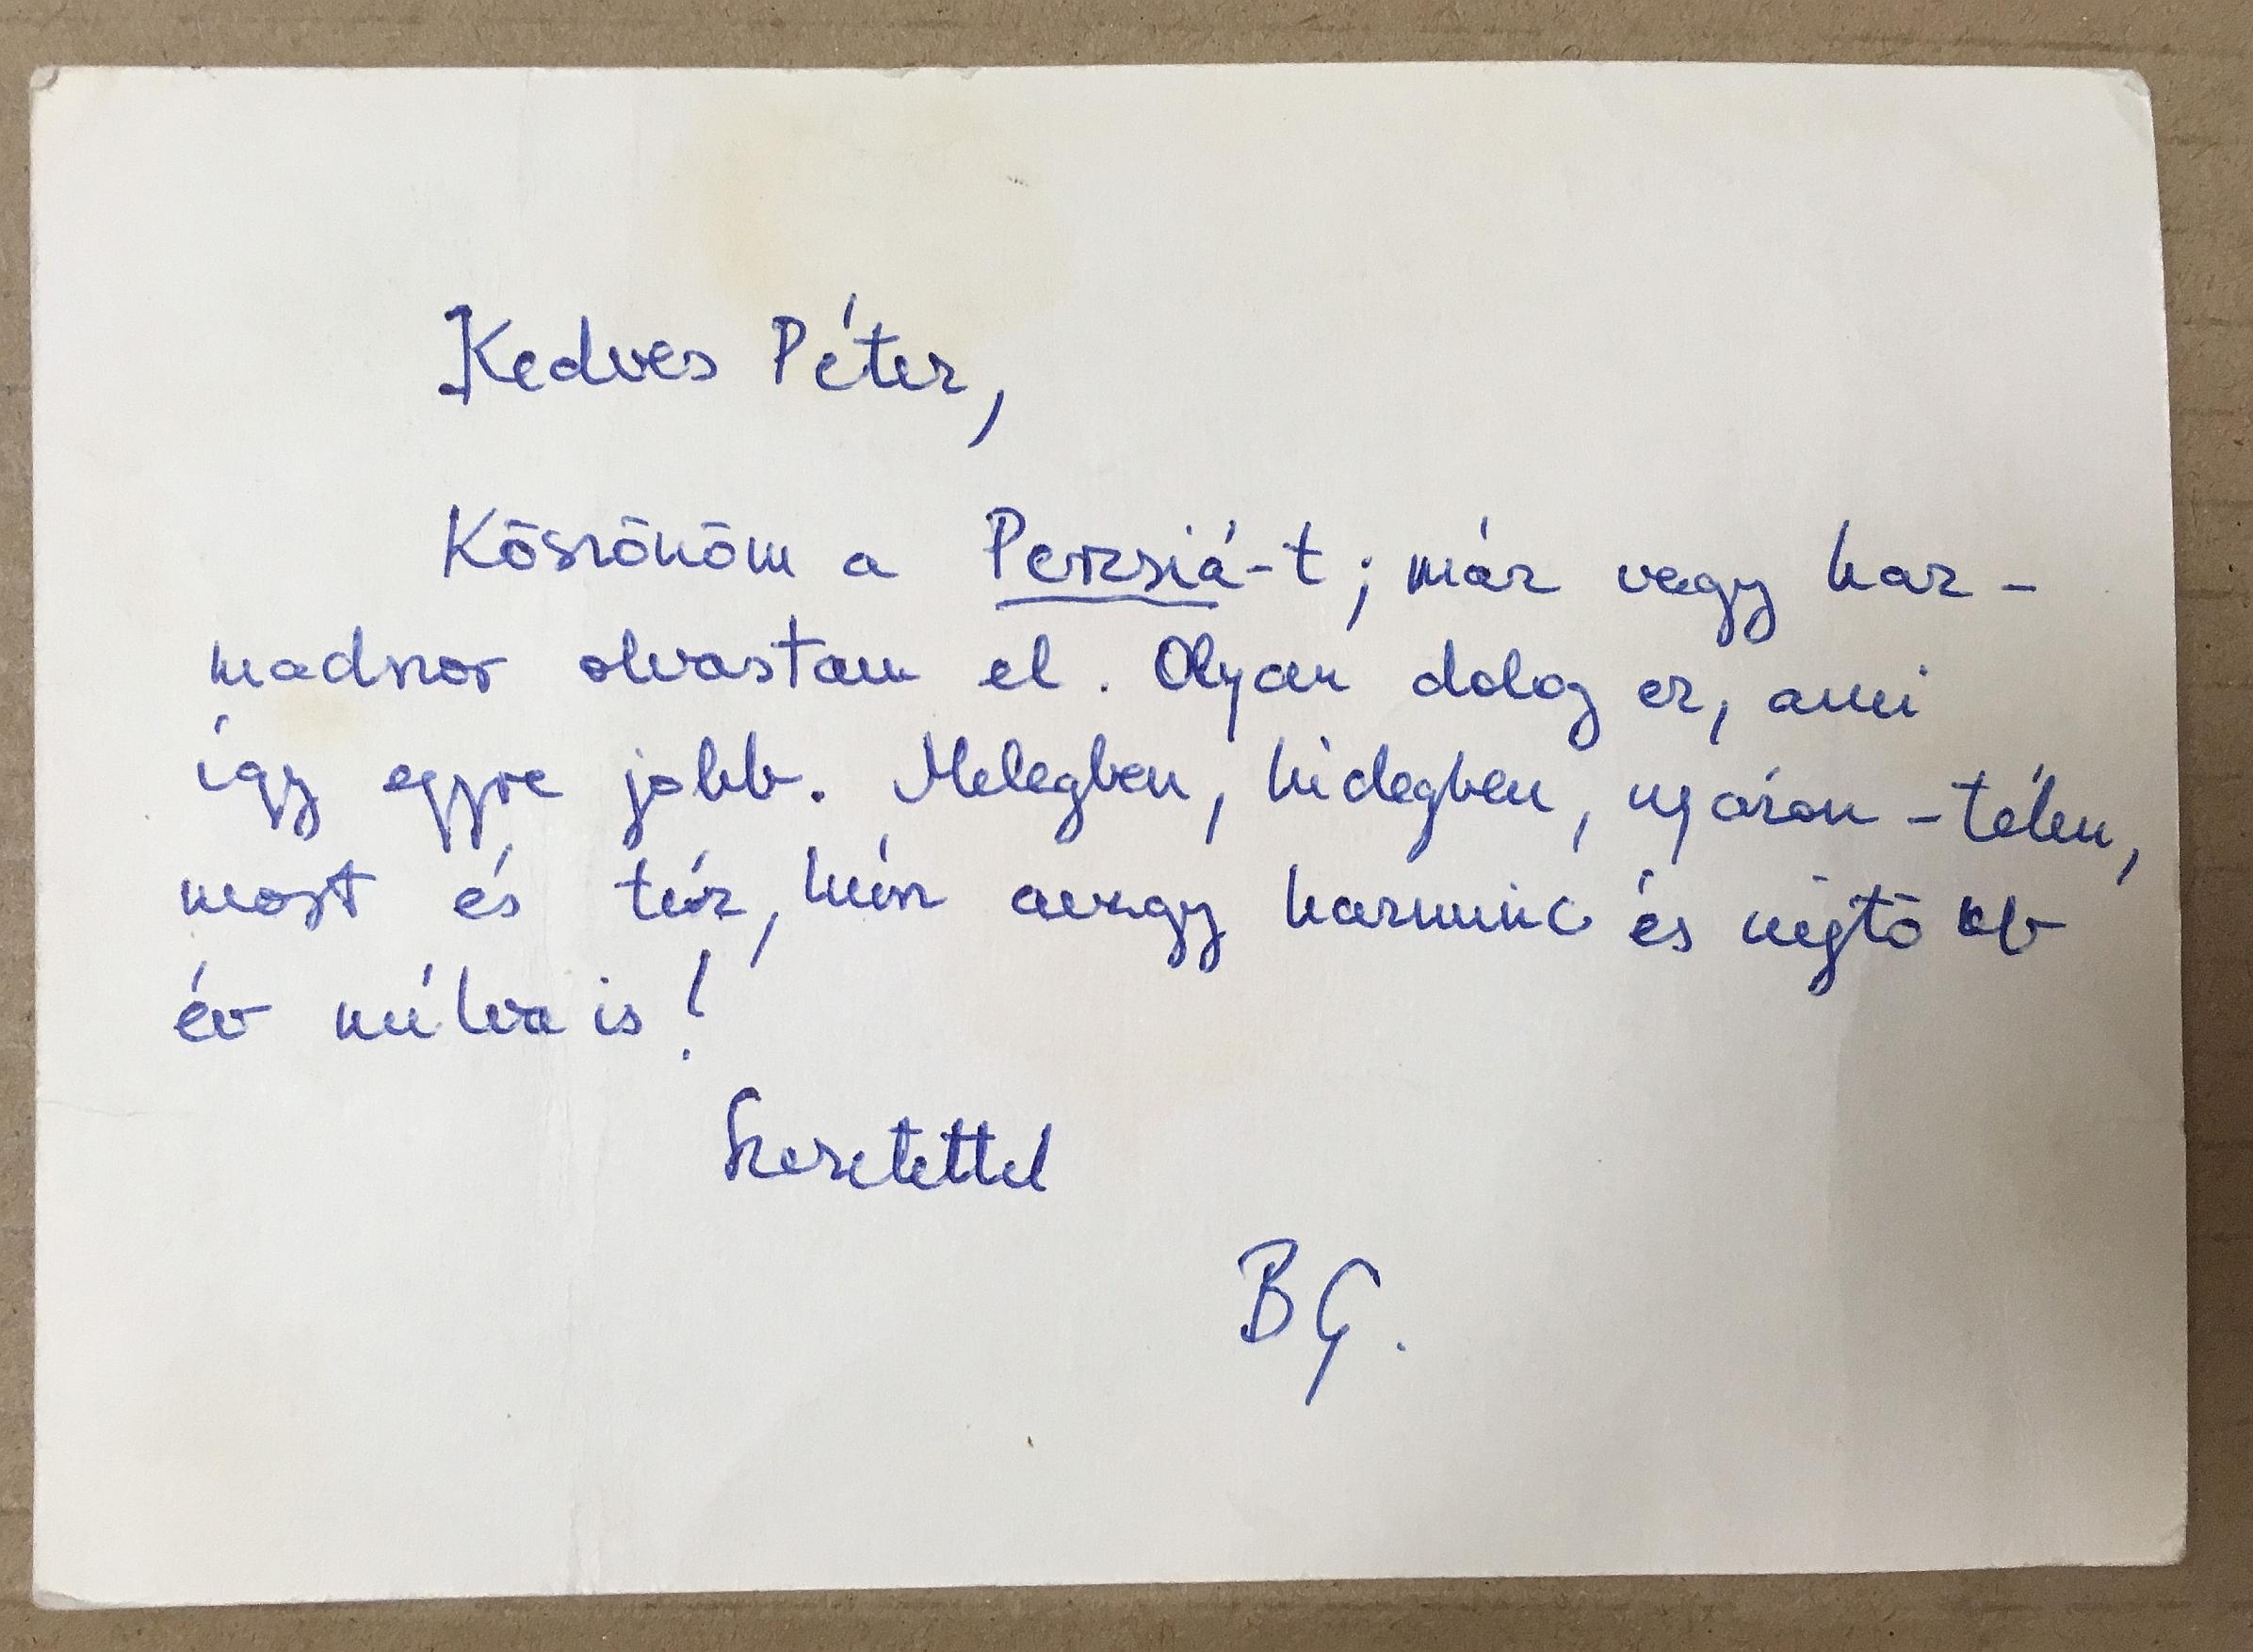 Kedves Péter,
Köszönöm a Perzsiá-t; már vagy har-
madszor olvastam el. Olyan dolog ez, ami
így egyre jobb. Melegben, hidegben, nyáron-télen,
most és tíz, húsz avagy harminc és mégtöbb
év múlva is!
Szeretettel
BG.